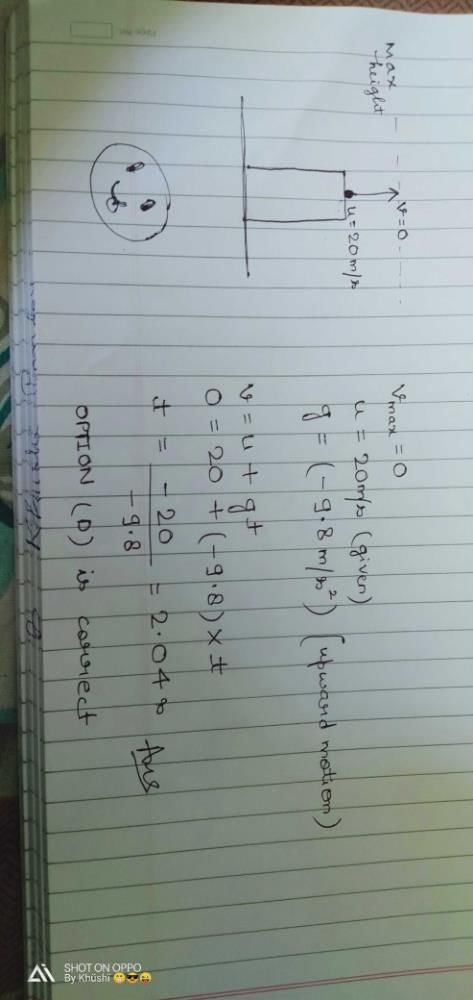 Page No.
Max
height
v = 0
u = 20m/s
Vmax = 0
u = 20m/s (given)
g = (-9.8m/s²) (upward motion)
v = u + gt
0 = 20 + (-9.8) × t
t = -20 / -9.8 = 2.04 s Ans
OPTION (D) is correct
SHOT ON OPPO
By Khushi 😁😎😜